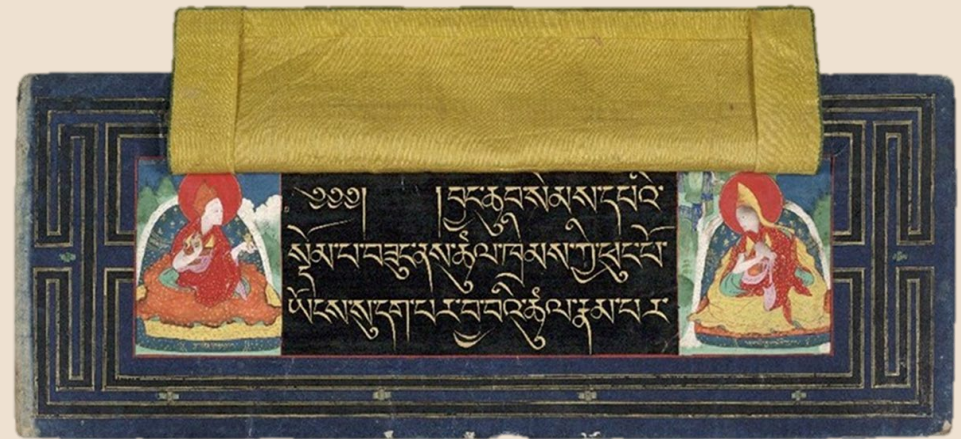 ༄༅༅། །བྱང་ཆུབ་སེམས་དཔའི་
སྡོམ་པ་བཟུང་ནས་ཚུལ་ཁྲིམས་ཀྱི་ཕུང་པོ་
ཡོངས་སུ་དག་པར་བྱ་བའི་ཚུལ་རྣམ་པར་